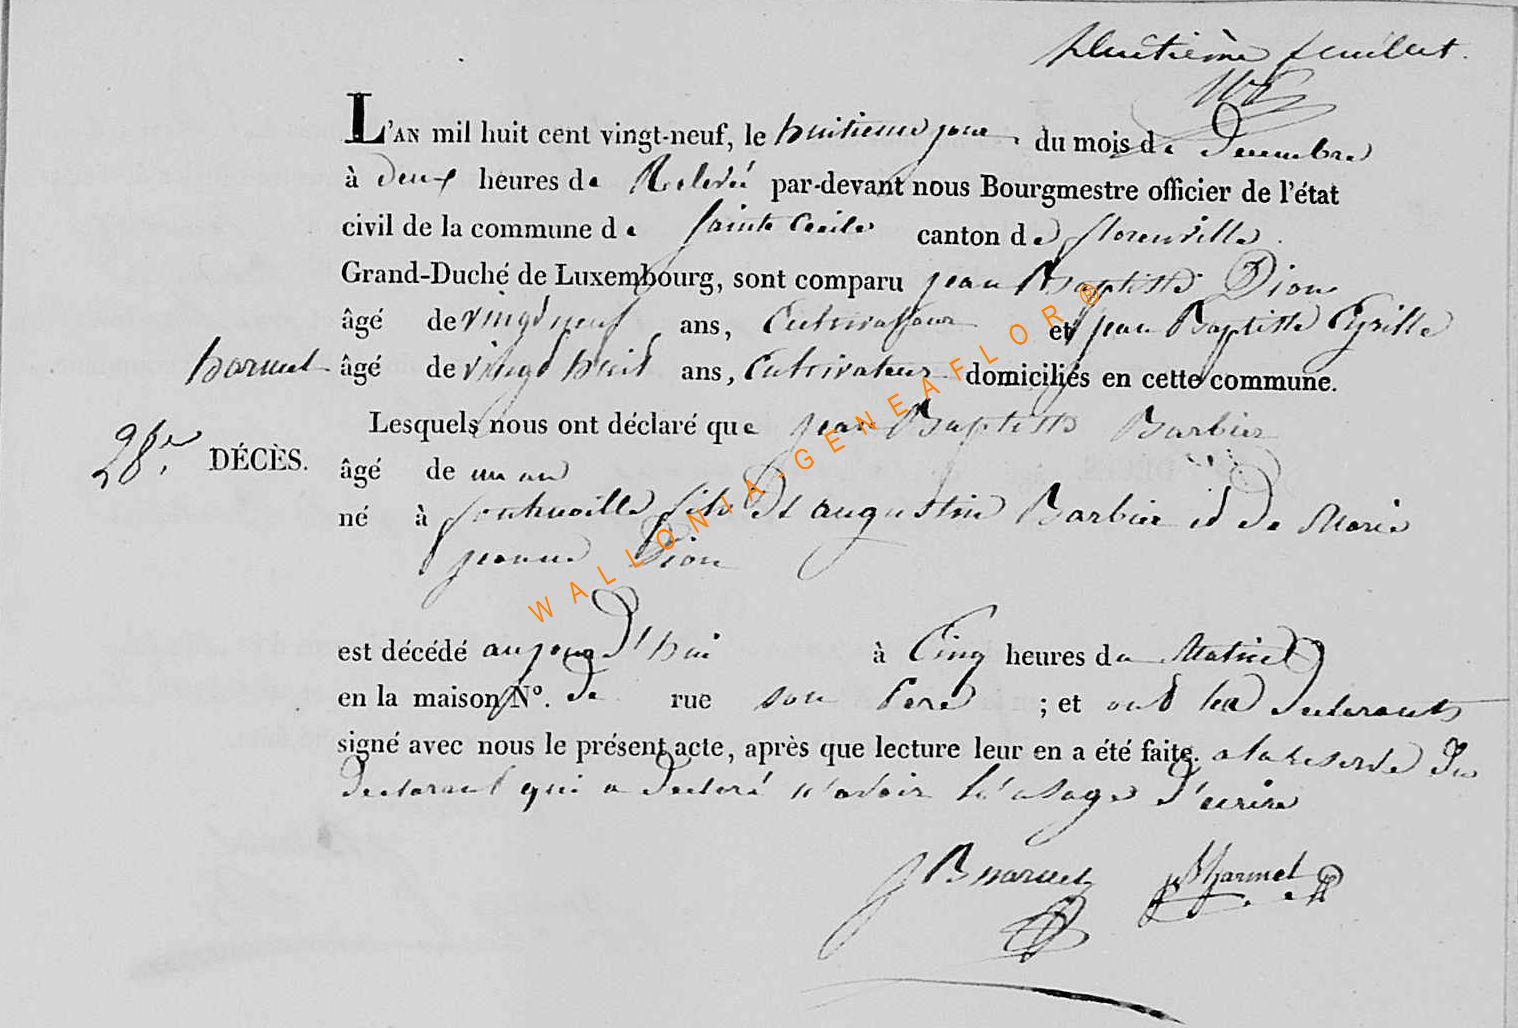 huitième feuillet.
L'AN mil huit cent vingt-neuf, le huitieme jour du mois de Decembre
à deux heures de Relevé par-devant nous Bourgmestre officier de l'état
civil de la commune de Sainte Cecile canton de florenville
Grand-Duché de Luxembourg, sont comparu jean Baptiste Dion
âgé de vingt neuf ans, Cultivateur et jean Baptiste Cyrille
harmel âgé de vingt huit ans, Cultivateur domiciliés en cette commune.
Lesquels nous ont déclaré que jean Baptiste Barbier
28e DÉCÈS.
âgé de un an
né à fontenoille fils de augustin Barbier et de Marie
jeanne Dion
est décédé aujourd'hui à Cinq heures du Matin
en la maison N°. de rue son Pere ; et ont les declarants
signé avec nous le présent acte, après que lecture leur en a été faite. a la reserve du
declarant qui a declaré n'avoir l'usage d'ecrire
JB harmel harmel
WALLONIA-GENEAFLOR®